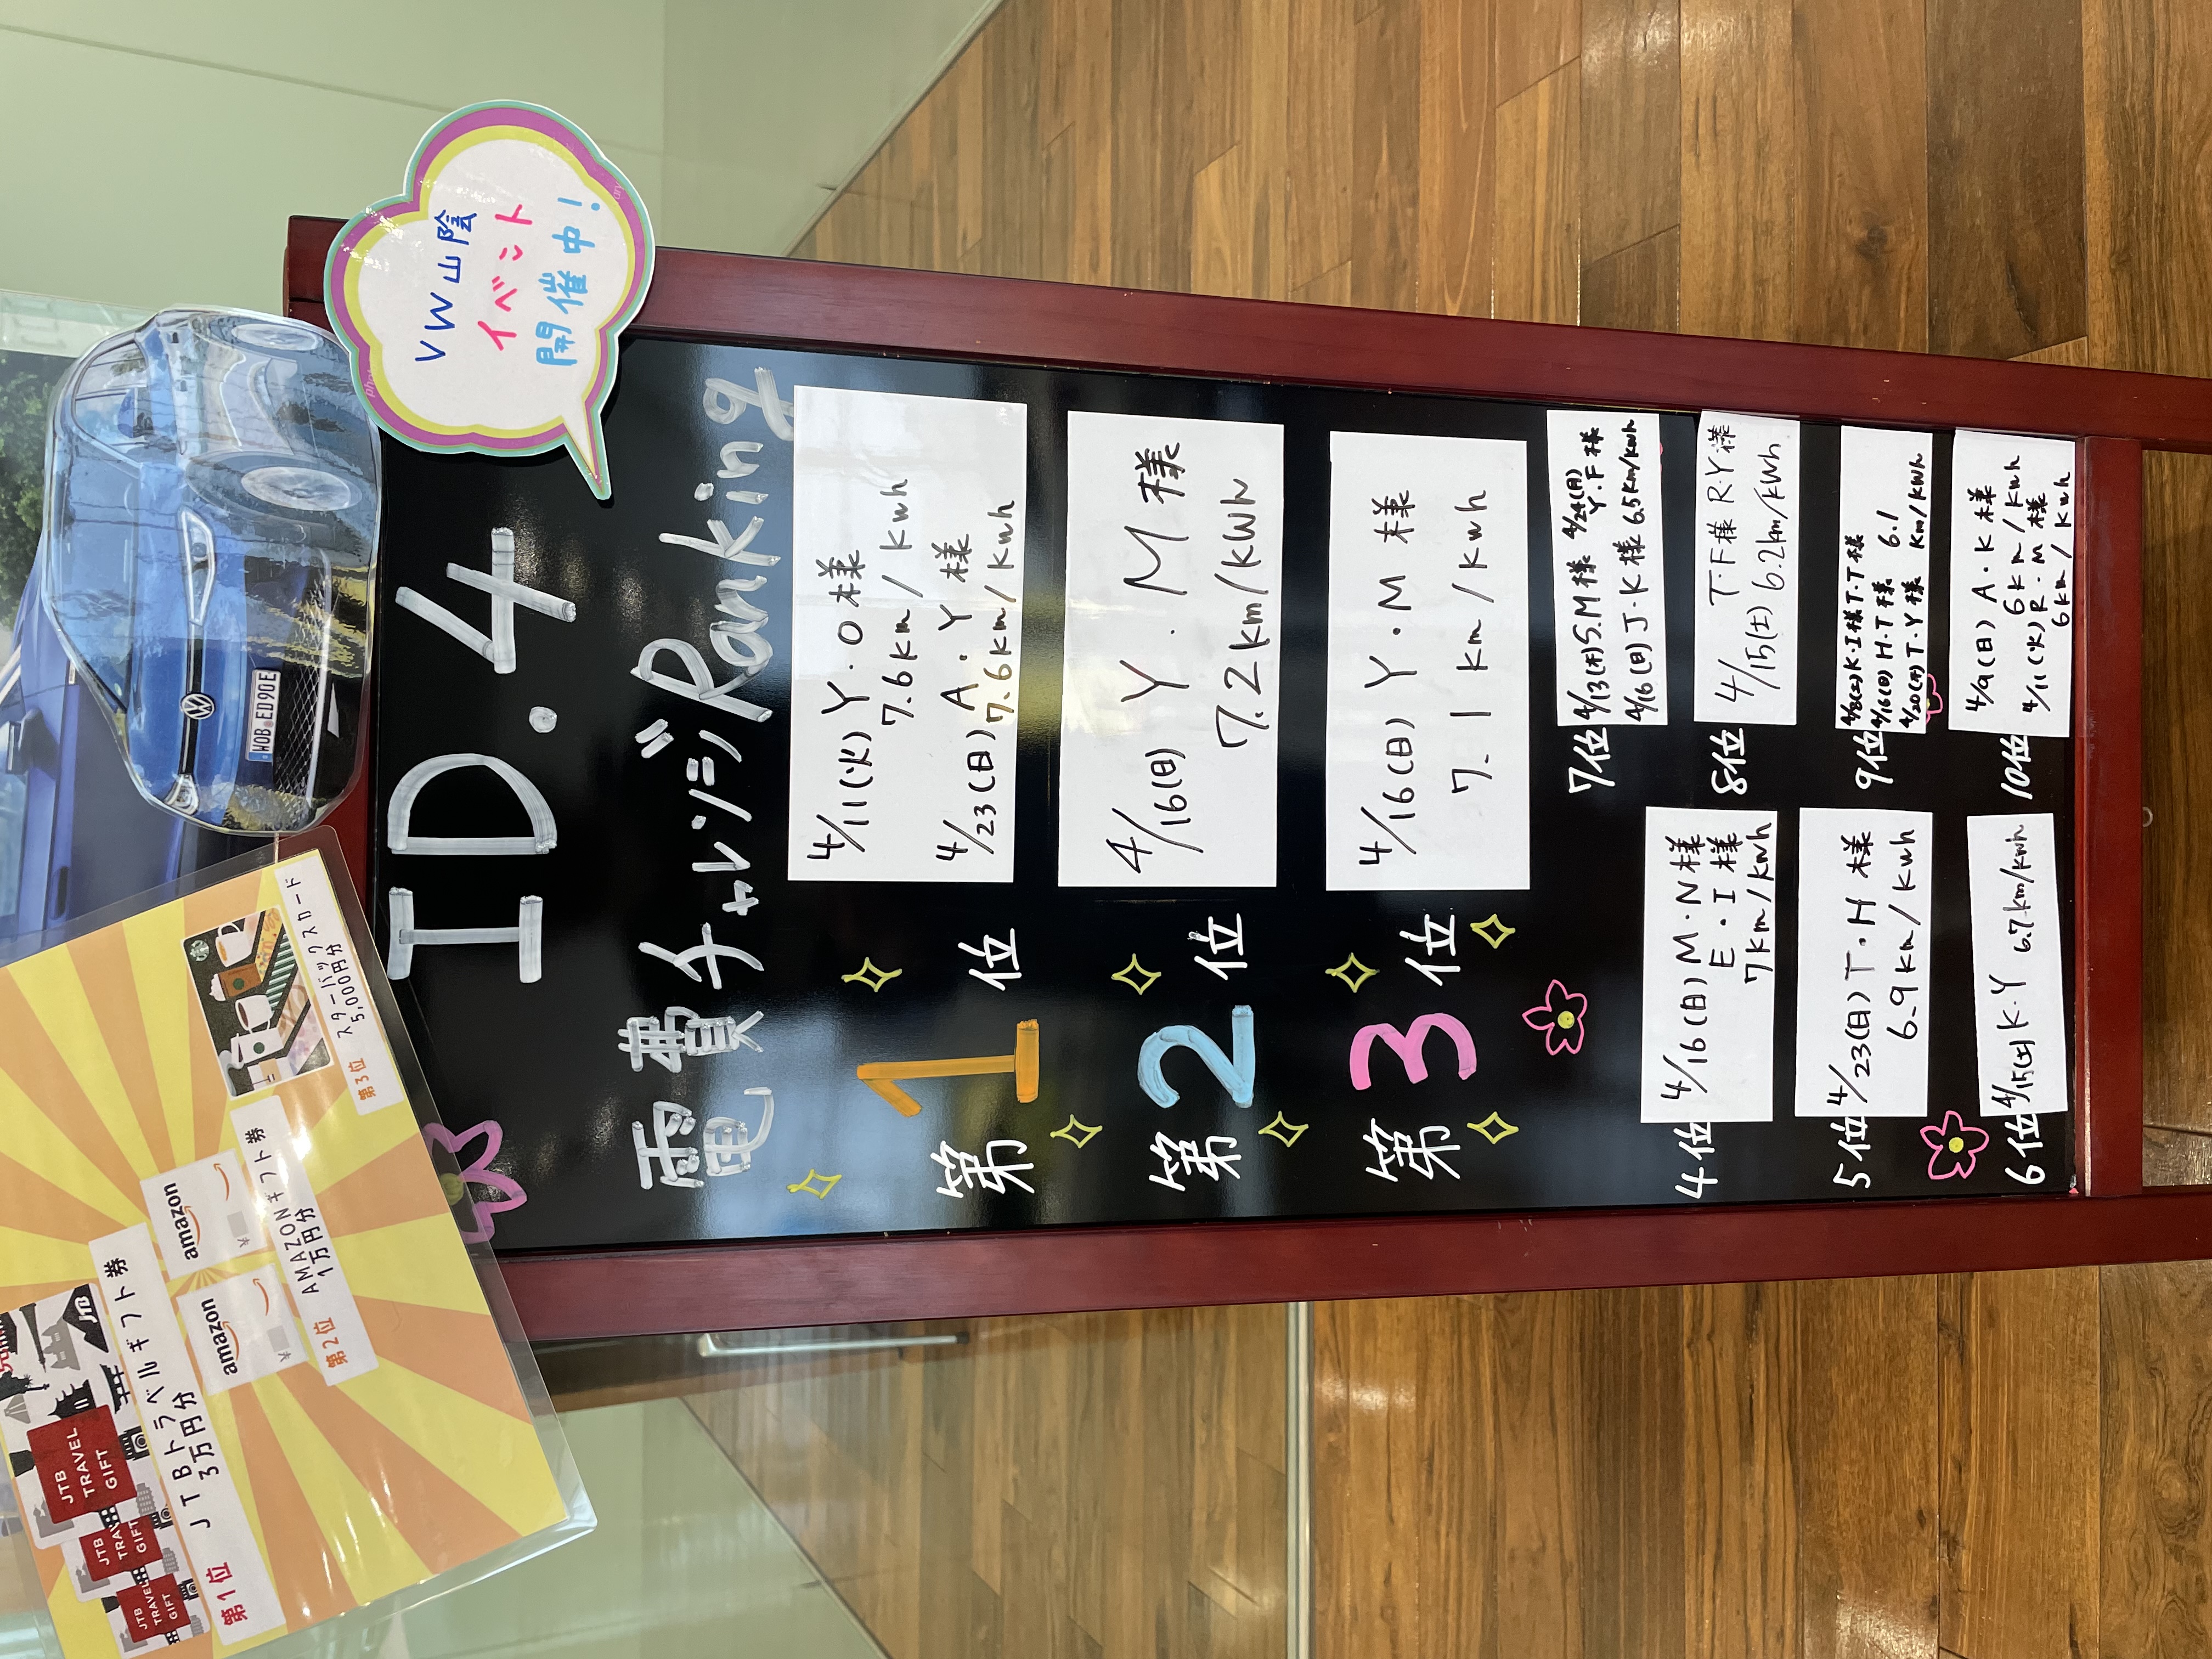 VW山陰
イベント
開催中!
WOB ED90E
第1位
JTBトラベルギフト券
3万円分
JTB
TRAVEL
GIFT
JTB
JTB
TRAVEL
GIFT
第2位
AMAZONギフト券
1万円分
amazon
amazon
第3位
スターバックスカード
5,000円分
ID.4
電費チャレンジRanking
第1位
4/11(火)Y・O様
7.6km/kwh
4/23(日)A・Y様
7.6km/kwh
第2位
4/16(日)Y.M様
7.2km/kWh
第3位
4/16(日)Y・M様
7.1km/kwh
4位
4/16(日)M・N様
E・I様
7km/kwh
5位
4/23(日)T・H様
6.9km/kwh
6位
4/15(土)K・Y 6.7km/kwh
7位
4/13(木)S.M様 4/24(日)Y・F様
4/16(日)J・K様 6.5km/kwh
8位
T・F様 R・Y様
4/15(土)6.2km/kWh
9位
4/8(土)K・I様 T・T様
4/16(日)H・T様 6.1
4/20(木)T・Y様 Km/kWh
10位
4/9(日)A・K様
6km/kwh
4/11(火)R・M様
6km/kwh